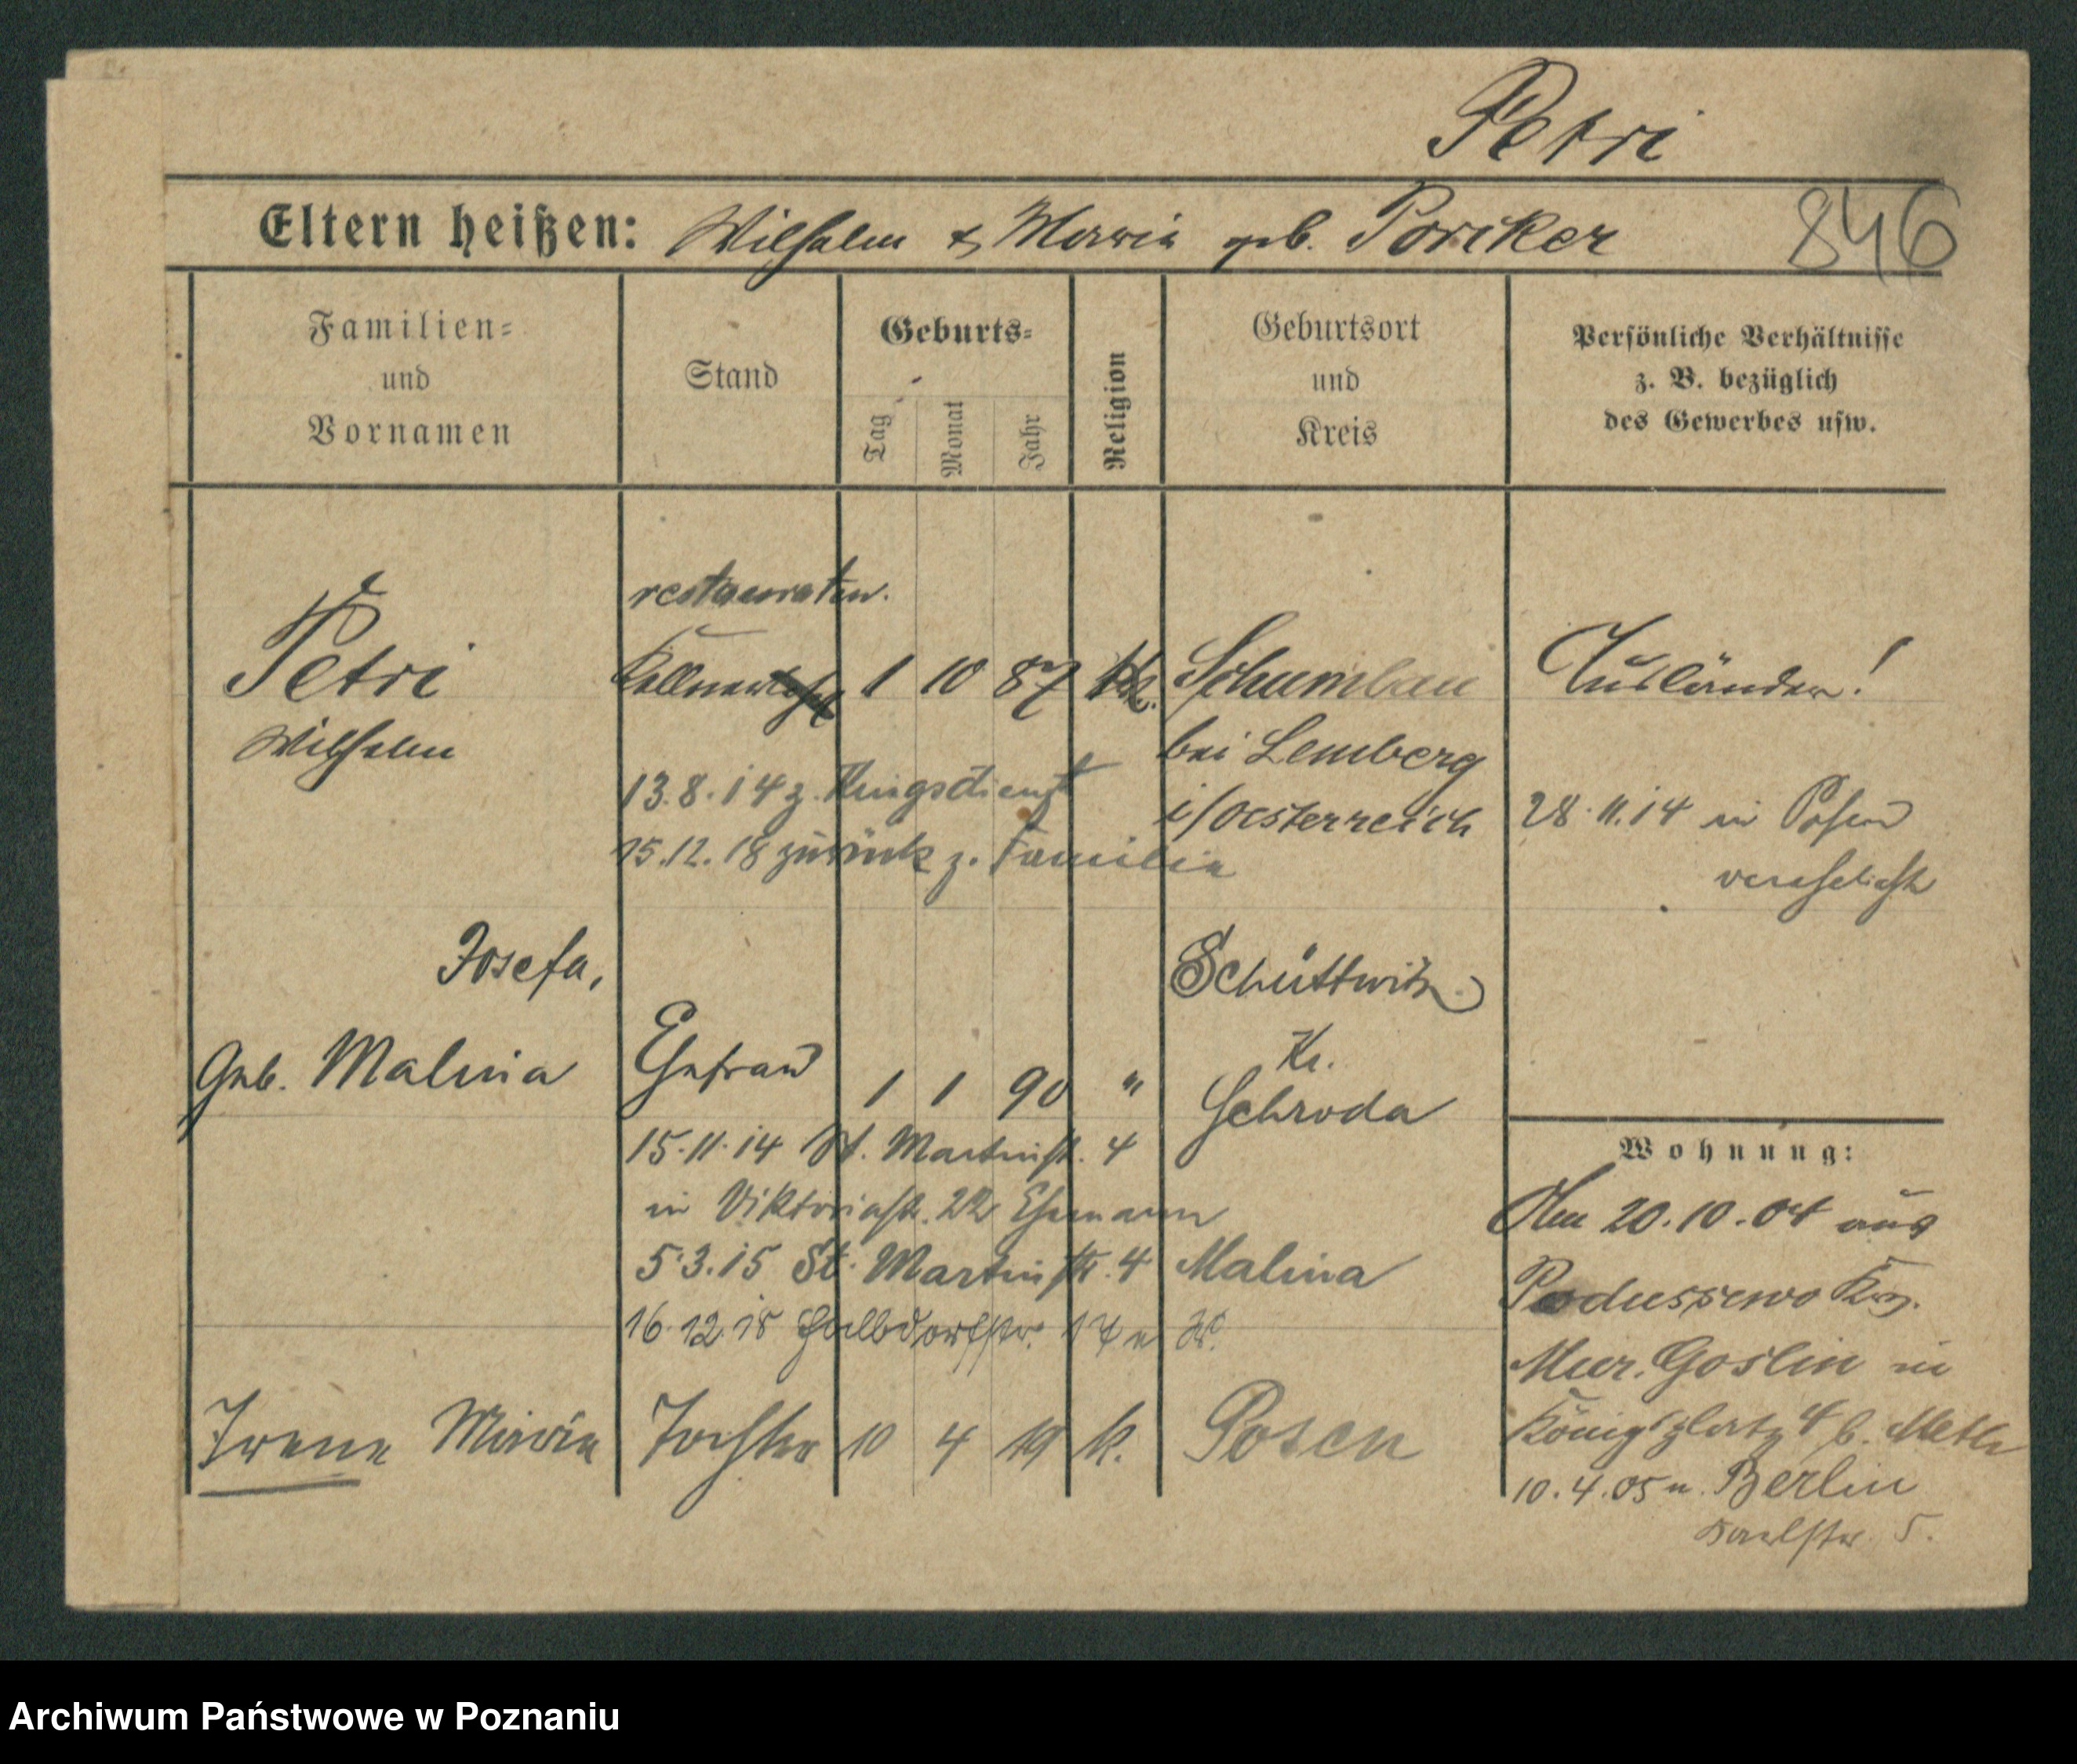 Petri
Eltern heißen: Wilhelm & Maria geb. Poriker
846
Familien-
und
Vornamen
Stand
Geburts-
Tag
Monat
Jahr
Religion
Geburtsort
und
Kreis
Persönliche Verhältnisse
z. B. bezüglich
des Gewerbes usw.
Petri
Wilhelm
restaurateur.
Kellner
1 10 87 k.
Schumlau
bei Lemberg
i/Oesterreich
Ausländer!
13.8.14 z. Kriegsdienst
15.12.18 zurück z. Familie
28.11.14 in Posen
verehelicht
Josefa,
Geb. Malina
Ehefrau
1 1 90 "
Schüttwitz
Kr.
Schroda
15.11.14 St. Martinstr. 4
in Viktoriastr. 22 Ehemann
5.3.15 St. Martinstr. 4 Malina
16.12.18 Halbdorfstr. 17
Irene Maria
Tochter
10 4 19 k.
Posen
Wohnung:
Am 20.10.04 aus
Podussewo
Mur. Goslin in
Königsplatz 4 b.
10.4.05 n. Berlin
Karlstr. 5.
Archiwum Państwowe w Poznaniu